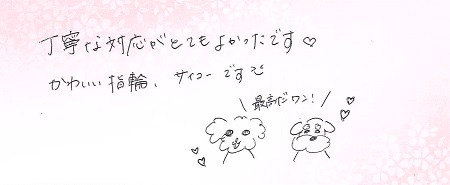 丁寧な対応がとてもよかったです♡
かわいい指輪、サイコーです
最高だワン!